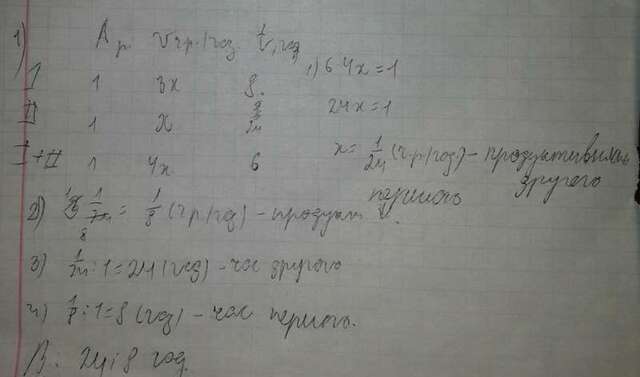 1) A, р. V, гр./год t, год
I 1 3x 8.
II 1 x 24
I+II 1 4x 6
1) 6·4x=1
24x=1
x = 1/24 (гр/год) - продуктивність другого
2) 3 · 1/24 = 1/8 (гр/год) - продукт. першого
3) 1/24 : 1 = 24 (год) - час другого
4) 1/8 : 1 = 8 (год) - час першого.
В: 24 і 8 год.